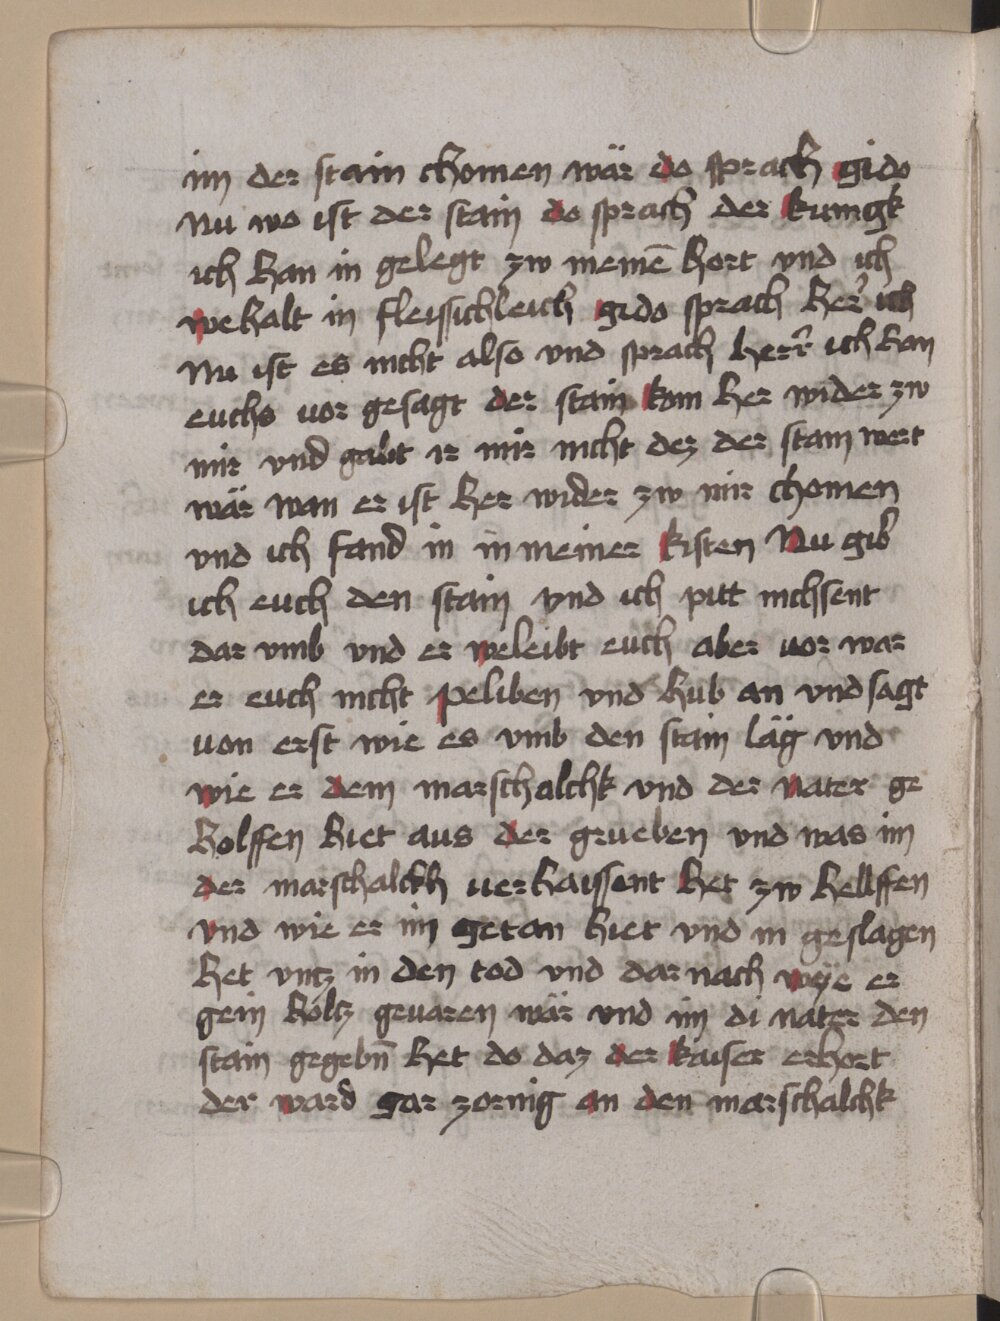 im der stain chomen wär do sprach gido
Nu wo ist der stain do sprach der kunigk
ich han in gelegt zw meinē hort vnd ich
wehalt in fleissichleich gido sprach her ich
Nu ist es nicht also vnd sprach herr ich han
euchs vor gesagt der stain kom her wider zw
mir vnd gabt ir mir nicht dez der stain wert
wär wan er ist her wider zw mir chomen
vnd ich fand in in meiner kisten Nu gib
ich euch den stain vnd ich pitt nichsent
dar vmb vnd er weleibt euch aber vor war
er euch nicht peliben vnd hub an vnd sagt
von erst wie es vmb den stain läg vnd
wie er dem marschalchk vnd der nater ge
holffen hiet aus der grueben vnd was im
der marschalckh verhaissent het zw hellffen
vnd wie er im getan hiet vnd in geslagen
het vntz in den tod vnd dar nach weÿe er
gein holtz gevaren wär vnd im di nater den
stain gegebn̄ het do daz der kaiser erhort
der ward gar zornig an den marschalchk